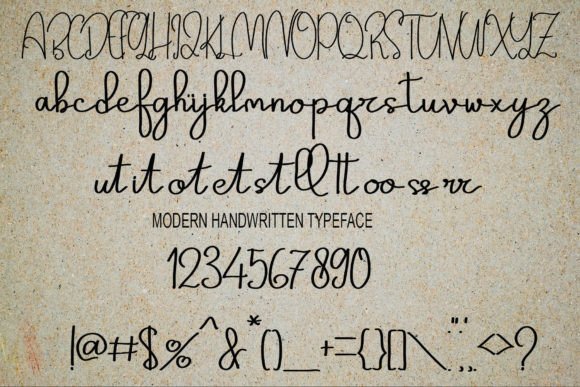 ABCDEFGHIJKLMNOPQRSTUVWXYZ
abcdefghijklmnopqrstuvwxyz
ut it ot et st ll tt oo ss rr
MODERN HANDWRITTEN TYPEFACE
1234567890
!@#$%^&*()_+-={}[]\":",.;<>?